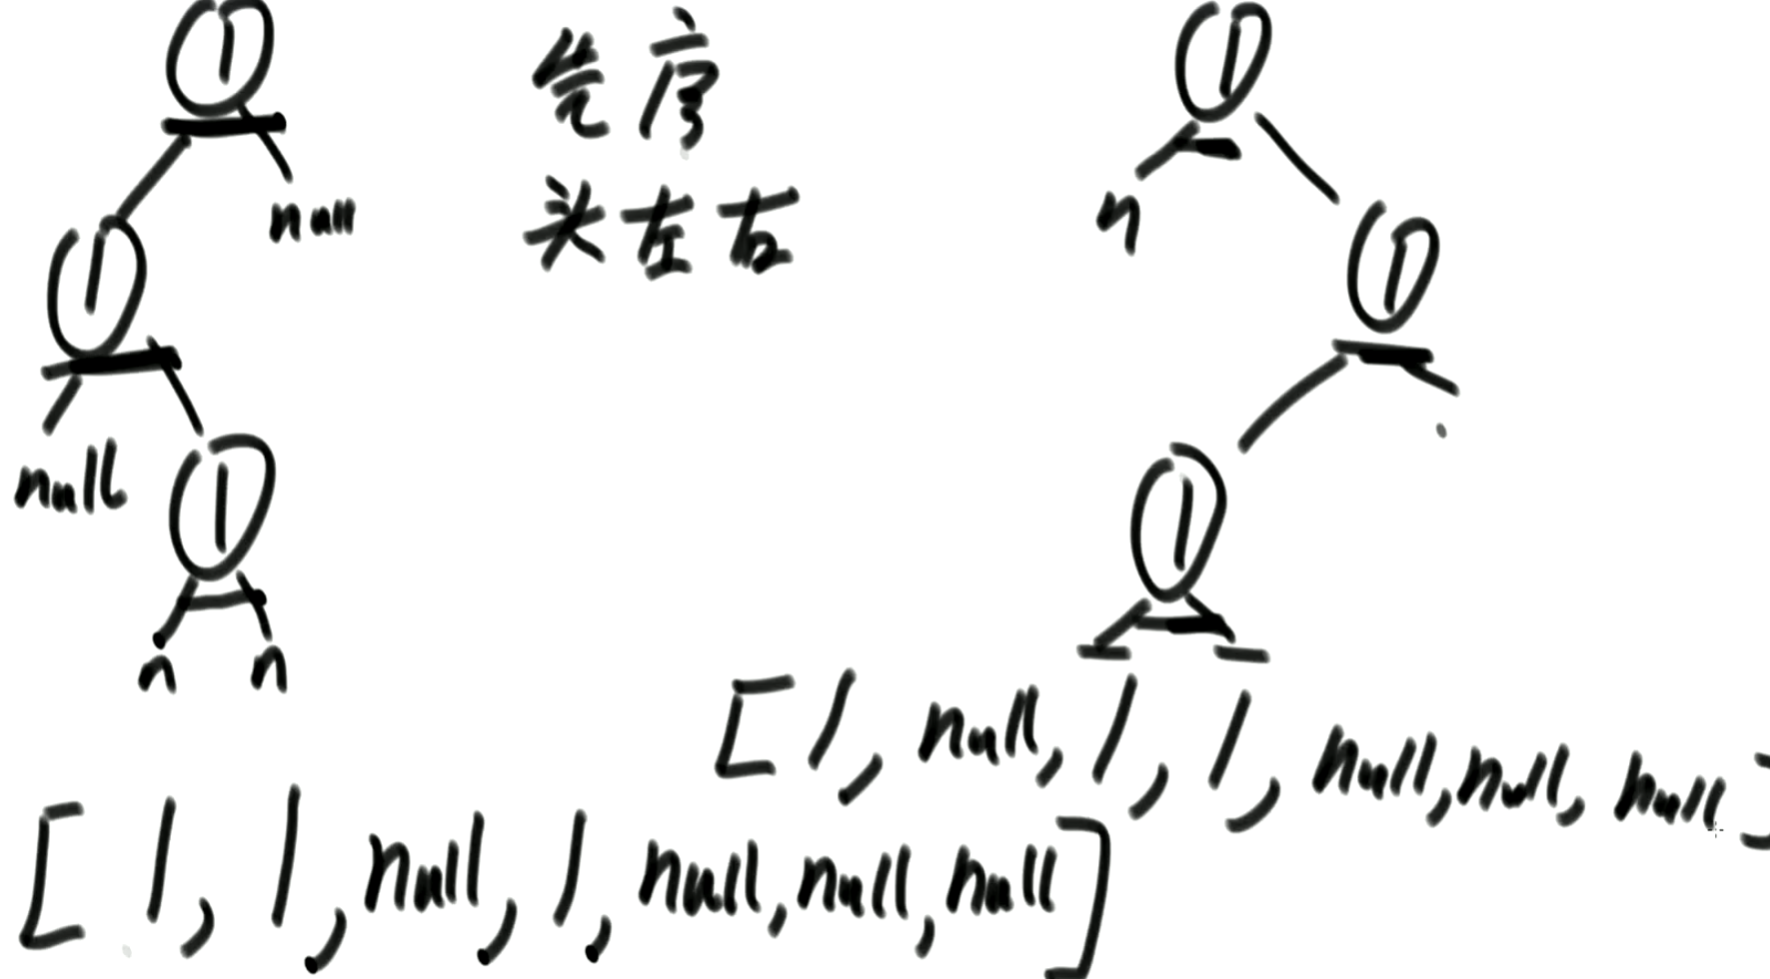 1
null
1
null
1
n n
先序
头左右
1
n
1
1
[1, null, 1, 1, null, null, null]
[1, 1, null, 1, null, null, null]